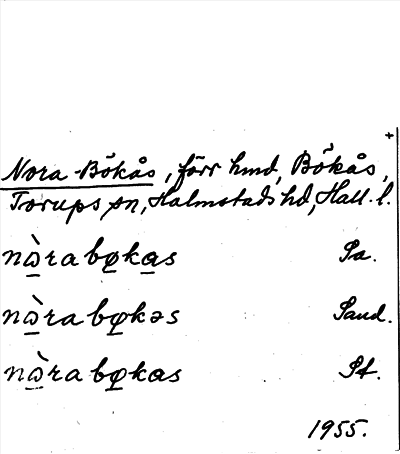 Nora Bökås, förr hmd, Bökås,
Torups sn, Halmstads hd, Hall. l.
nὼrabφkas Sa.
nὼrabφkəs Sand.
nὼrabφkas St.
1955.